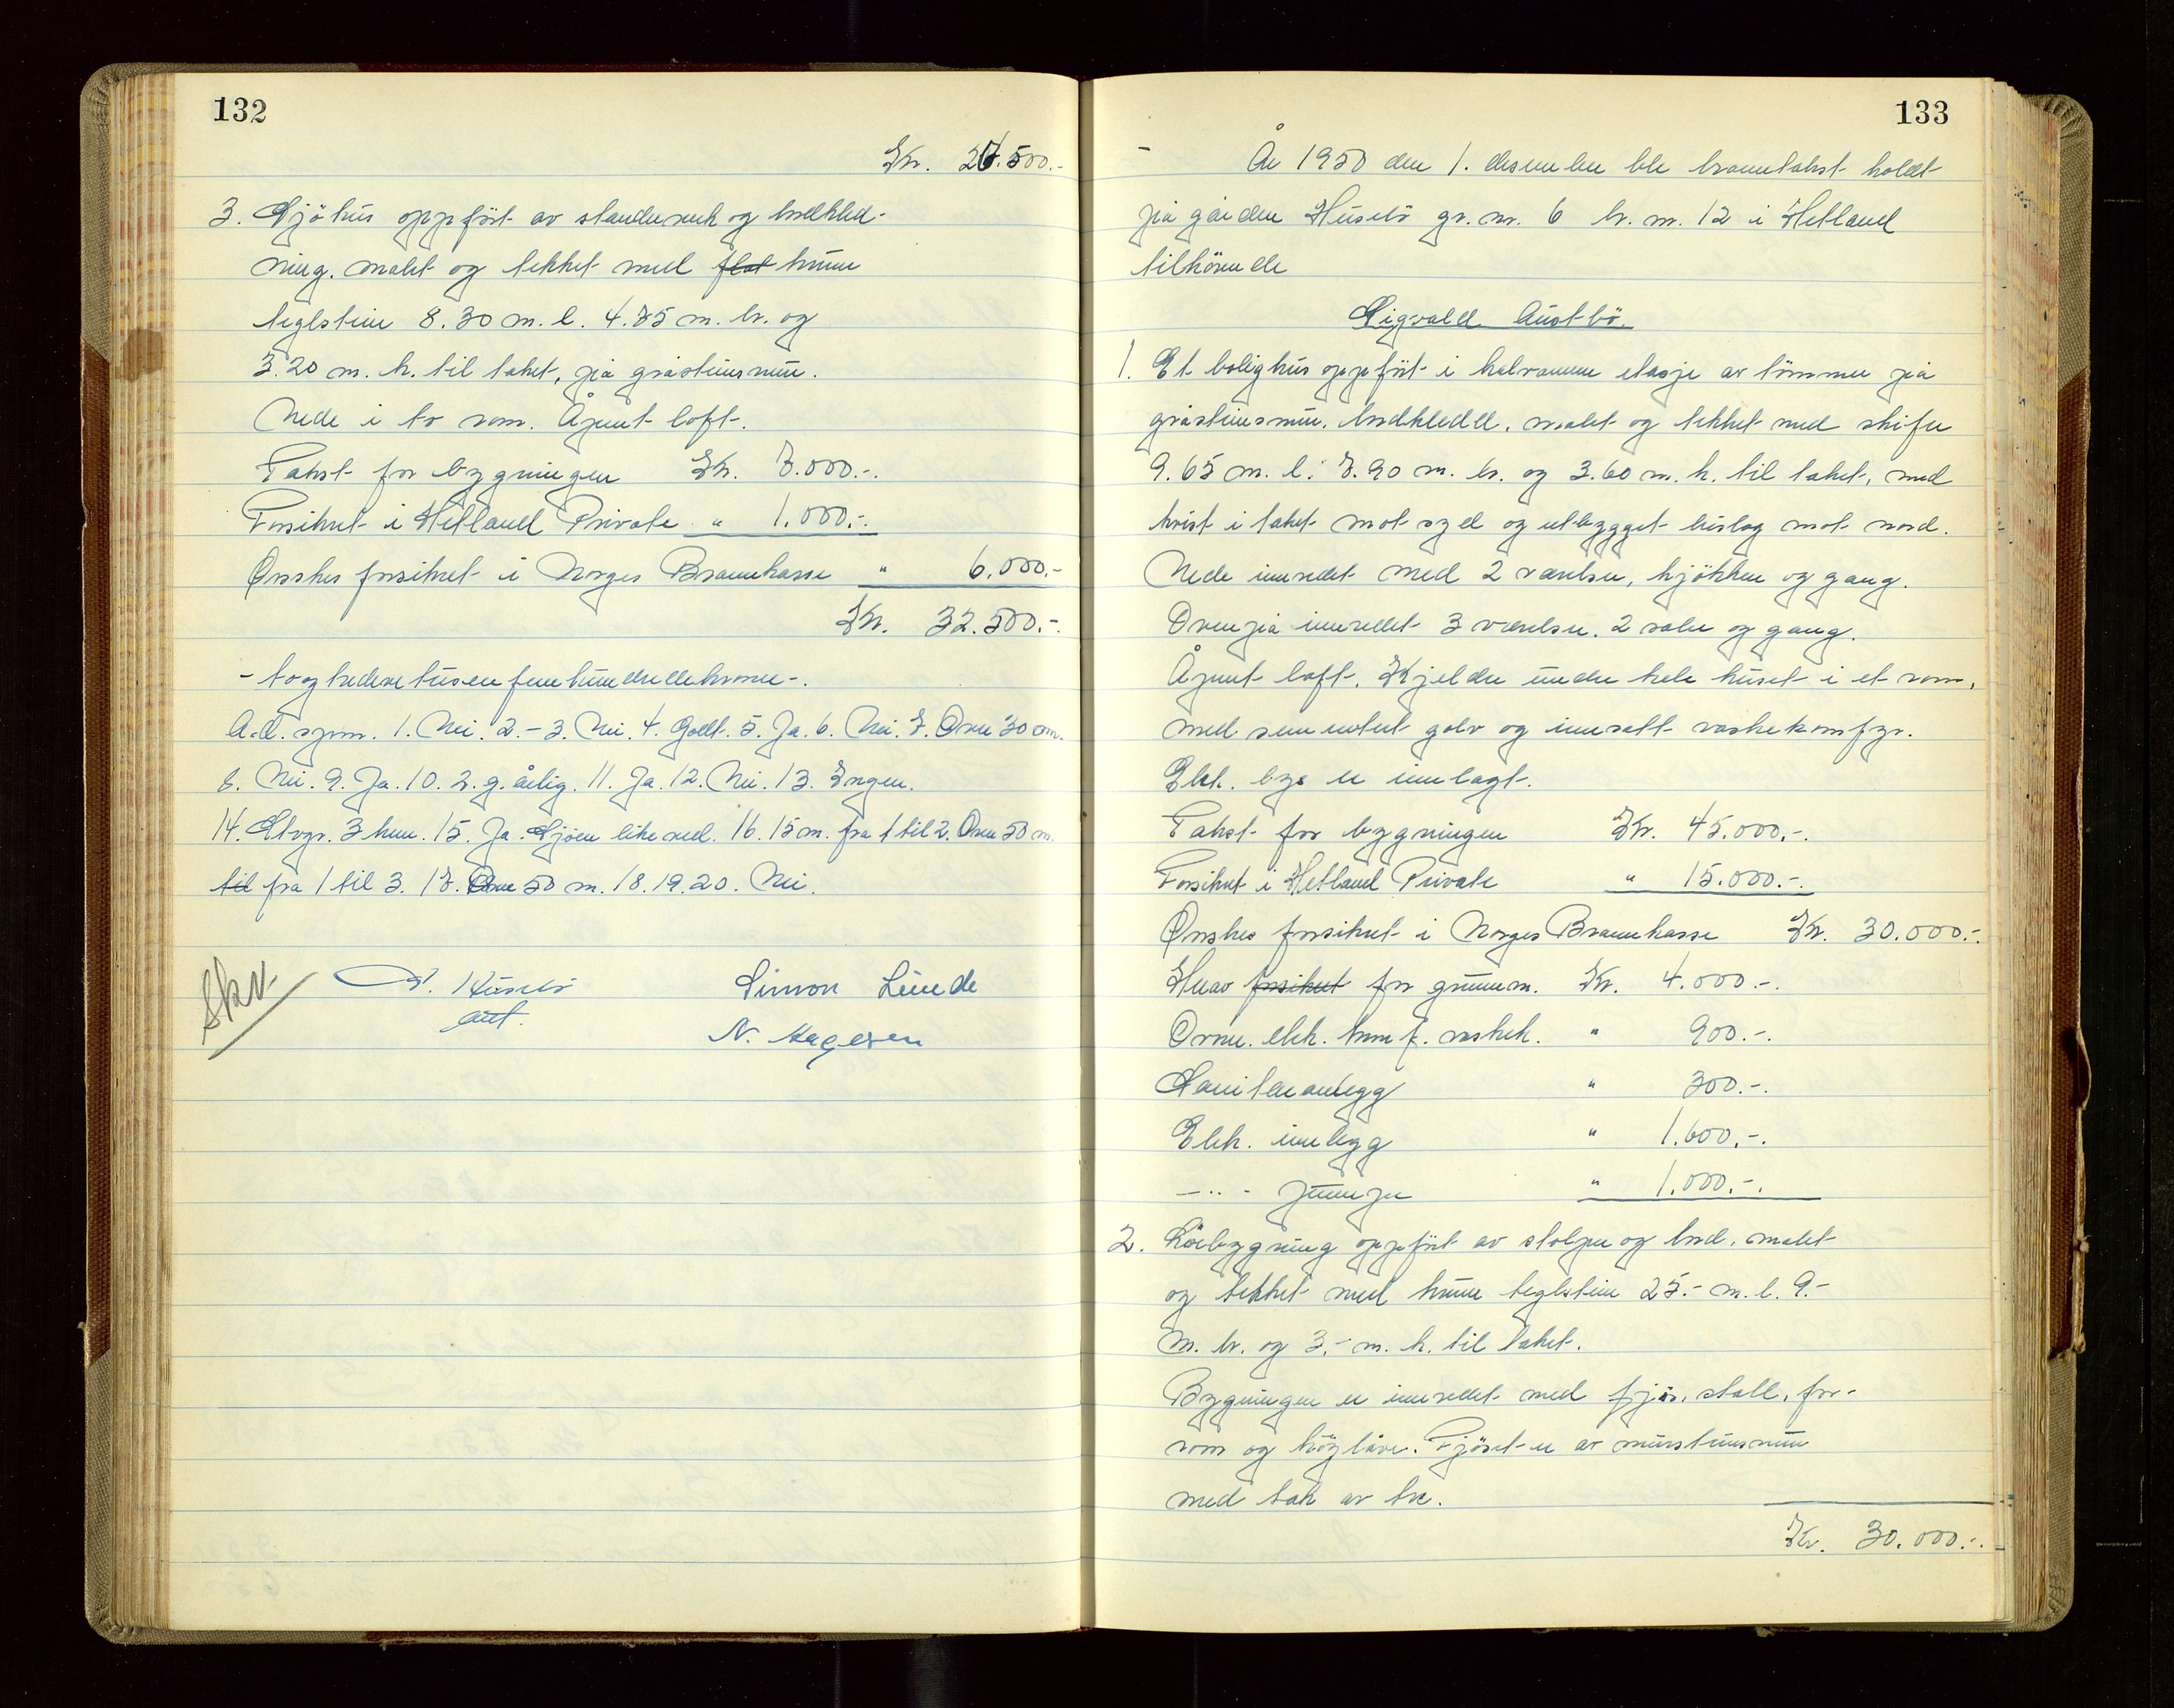 132
Kr. 26.500.-
3. Sjøhus oppført av standerverk og bordkled-
ning. malet og tekket med flat krum
teglstein 8.30 m. l. 4.75 m. br. og
3.20 m. h. til taket, på gråsteinsmur.
Nede i to rom. Åpent loft.
Takst for bygningen Kr. 7.000.-.
Forsikret i Hetland Private " 1.000.-
Ønskes forsikret i Norges Brannkasse " 6.000.-
Kr. 32.500.-.
- toogtredevetusenfemhundredekroner -.
A.d. spm. 1. Nei. 2. - 3. Nei. 4. Godt. 5. Ja. 6. Nei. 7. Over 30 cm.
8. Nei. 9. Ja. 10. 2. g. årlig. 11. Ja. 12. Nei. 13. Ingen.
14. Stvgr. 3 km. 15. Ja. Sjøen like ved. 16. 15 m. fra 1 til 2. Over 50 m.
til fra 1 til 3. 17. Over 50 m. 18. 19. 20. Nei.
Skr. Husebø Simon Lunde
N. Hagesen
133
- År 1950 den 1. desember ble branntakst holdt
på gården Husebø gr. nr. 6 br. nr. 12 i Hetland
tilhørende
Sigvald Austbø.
1. Et bolighus oppført i halvannen etasje av tømmer på
gråsteinsmur. bordkledd, malet og tekket med skifer
9.65 m. l. 7.90 m. br. og 3.60 m. h. til taket, med
kvist i taket mot syd og utbygget bislag mot nord.
Nede innredet med 2 værelser, kjøkken og gang.
Ovenpå innredet 3 værelser. 2 boder og gang.
Åpent loft. Kjelder under hele huset i et rom,
med sementert golv og innsatt vaskekomfyr.
Elek. lys er innlagt.
Takst for bygningen Kr. 45.000.-.
Forsikret i Hetland Private " 15.000.-.
Ønskes forsikret i Norges Brannkasse Kr. 30.000.-.
Herav forsikret for grunnm. Kr. 4.000.-.
Ovner. elek. komf. vaskek. " 900.-.
Sanitæranlegg " 300.-.
Elek. innlegg " 1.600.-.
- " - pumpe " 1.000.-.
2. Løebygning oppført av stolper og bord. malet
og tekket med krum teglstein 25.- m. l. 9.-
m. br. og 3.- m. h. til taket.
Bygningen er innredet med fjøs, stall, for-
rom og høyløve. Fjøset er av mursteinsmur
med tak av tre.
Kr. 30.000.-.